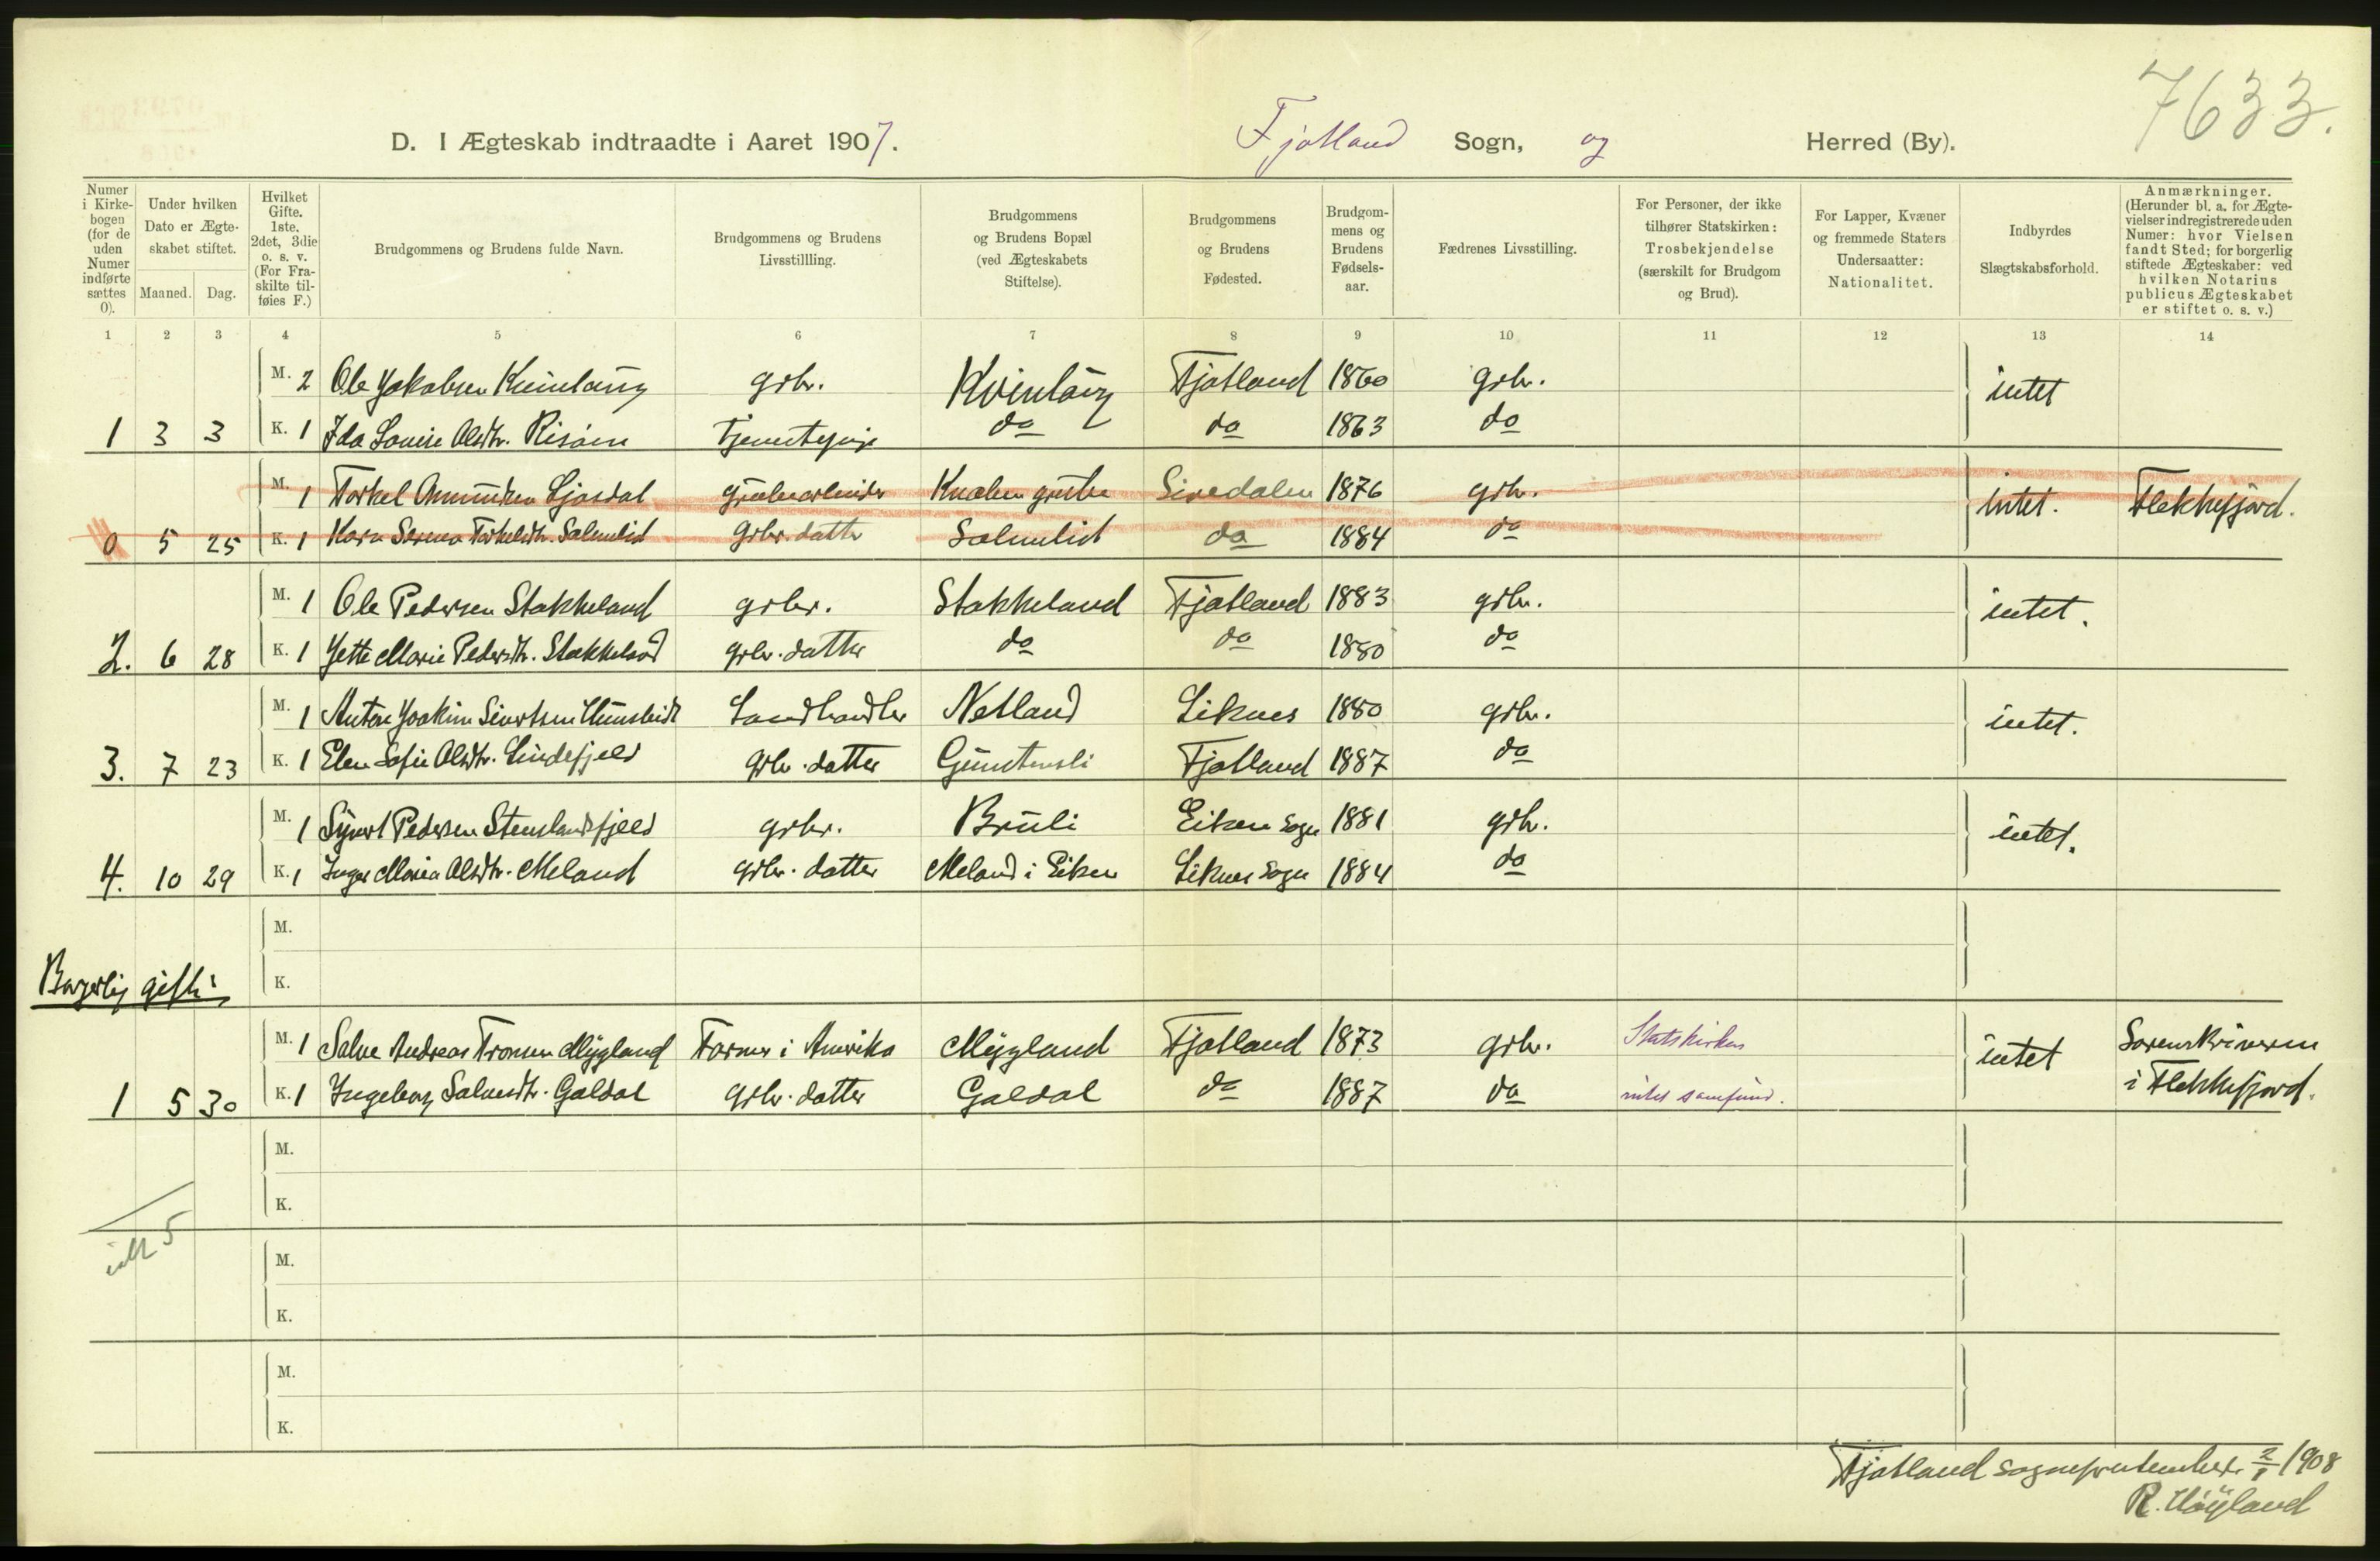 7633.
D. I Ægteskab indtraadte i Aaret 1907. Fjotland Sogn, og Herred (By).
Numer i Kirkebogen (for de uden Numer indførte sættes 0).
Under hvilken Dato er Ægteskabet stiftet.
Maaned. Dag.
Hvilket Gifte. 1ste. 2det, 3die o. s. v. (For Fraskilte tilføies F.)
Brudgommens og Brudens fulde Navn.
Brudgommens og Brudens Livsstillling.
Brudgommens og Brudens Bopæl (ved Ægteskabets Stiftelse).
Brudgommens og Brudens Fødested.
Brudgommens og Brudens Fødselsaar.
Fædrenes Livsstilling.
For Personer, der ikke tilhører Statskirken: Trosbekjendelse (særskilt for Brudgom og Brud).
For Lapper, Kvæner og fremmede Staters Undersaatter: Nationalitet.
Indbyrdes Slægtskabsforhold.
Anmærkninger. (Herunder bl. a. for Ægtevielser indregistrerede uden Numer: hvor Vielsen fandt Sted; for borgerlig stiftede Ægteskaber: ved hvilken Notarius publicus Ægteskabet er stiftet o. s. v.)
1 2 3 4 5 6 7 8 9 10 11 12 13 14
M. 2 Ole Jakobsen Kvinlaug grbr. Kvinlaug Fjotland 1860 grbr. intet
1 3 3 K. 1 Ida Lovise Olsdtr. Risåm do do 1863 do
M. 1 Torkel Ommundsen Ljosdal grubearbeider Knaben grube Siredalen 1876 grbr. intet. Flekkefjord.
0 5 25 K. 1 Karn Serina Torkelsdtr. Salmelid grbr. datter Salmelid do 1884 do
M. 1 Ole Pedersen Stakkeland grbr. Stakkeland Fjotland 1883 grbr. intet.
2. 6 28 K. 1 Jette Marie Pedersdtr. Stakkeland grbr. datter do do 1880 do
M. 1 Anton Joakim Sivertsen Hunsbedt Landhandler Netland Liknes 1880 grbr. intet.
3. 7 23 K. 1 Elen Sofie Olsdtr. Lindefjeld grbr. datter Gunstensli Fjotland 1887 do
M. 1 Syvert Pedersen Stenslandsfjeld grbr. Bruli Eiken Sogn 1881 grbr. intet.
4. 10 29 K. 1 Inger Maria Olsdtr. Meland grbr. datter Meland i Eiken Liknes Sogn 1884 do
M.
Borgerlig gifte: K.
M. 1 Salve Andreas Tronsen Mygland Farmer i Amerika Mygland Fjotland 1873 grbr. Statskirken intet Sorenskriveren
1 5 30 K. 1 Ingeborg Salvesdtr. Galdal grbr. datter Galdal do 1887 do intet samfund. i Flekkefjord.
M.
K.
ialt 5
M.
K.
M.
K.
Fjotland 2/1 1908
R. Høyland